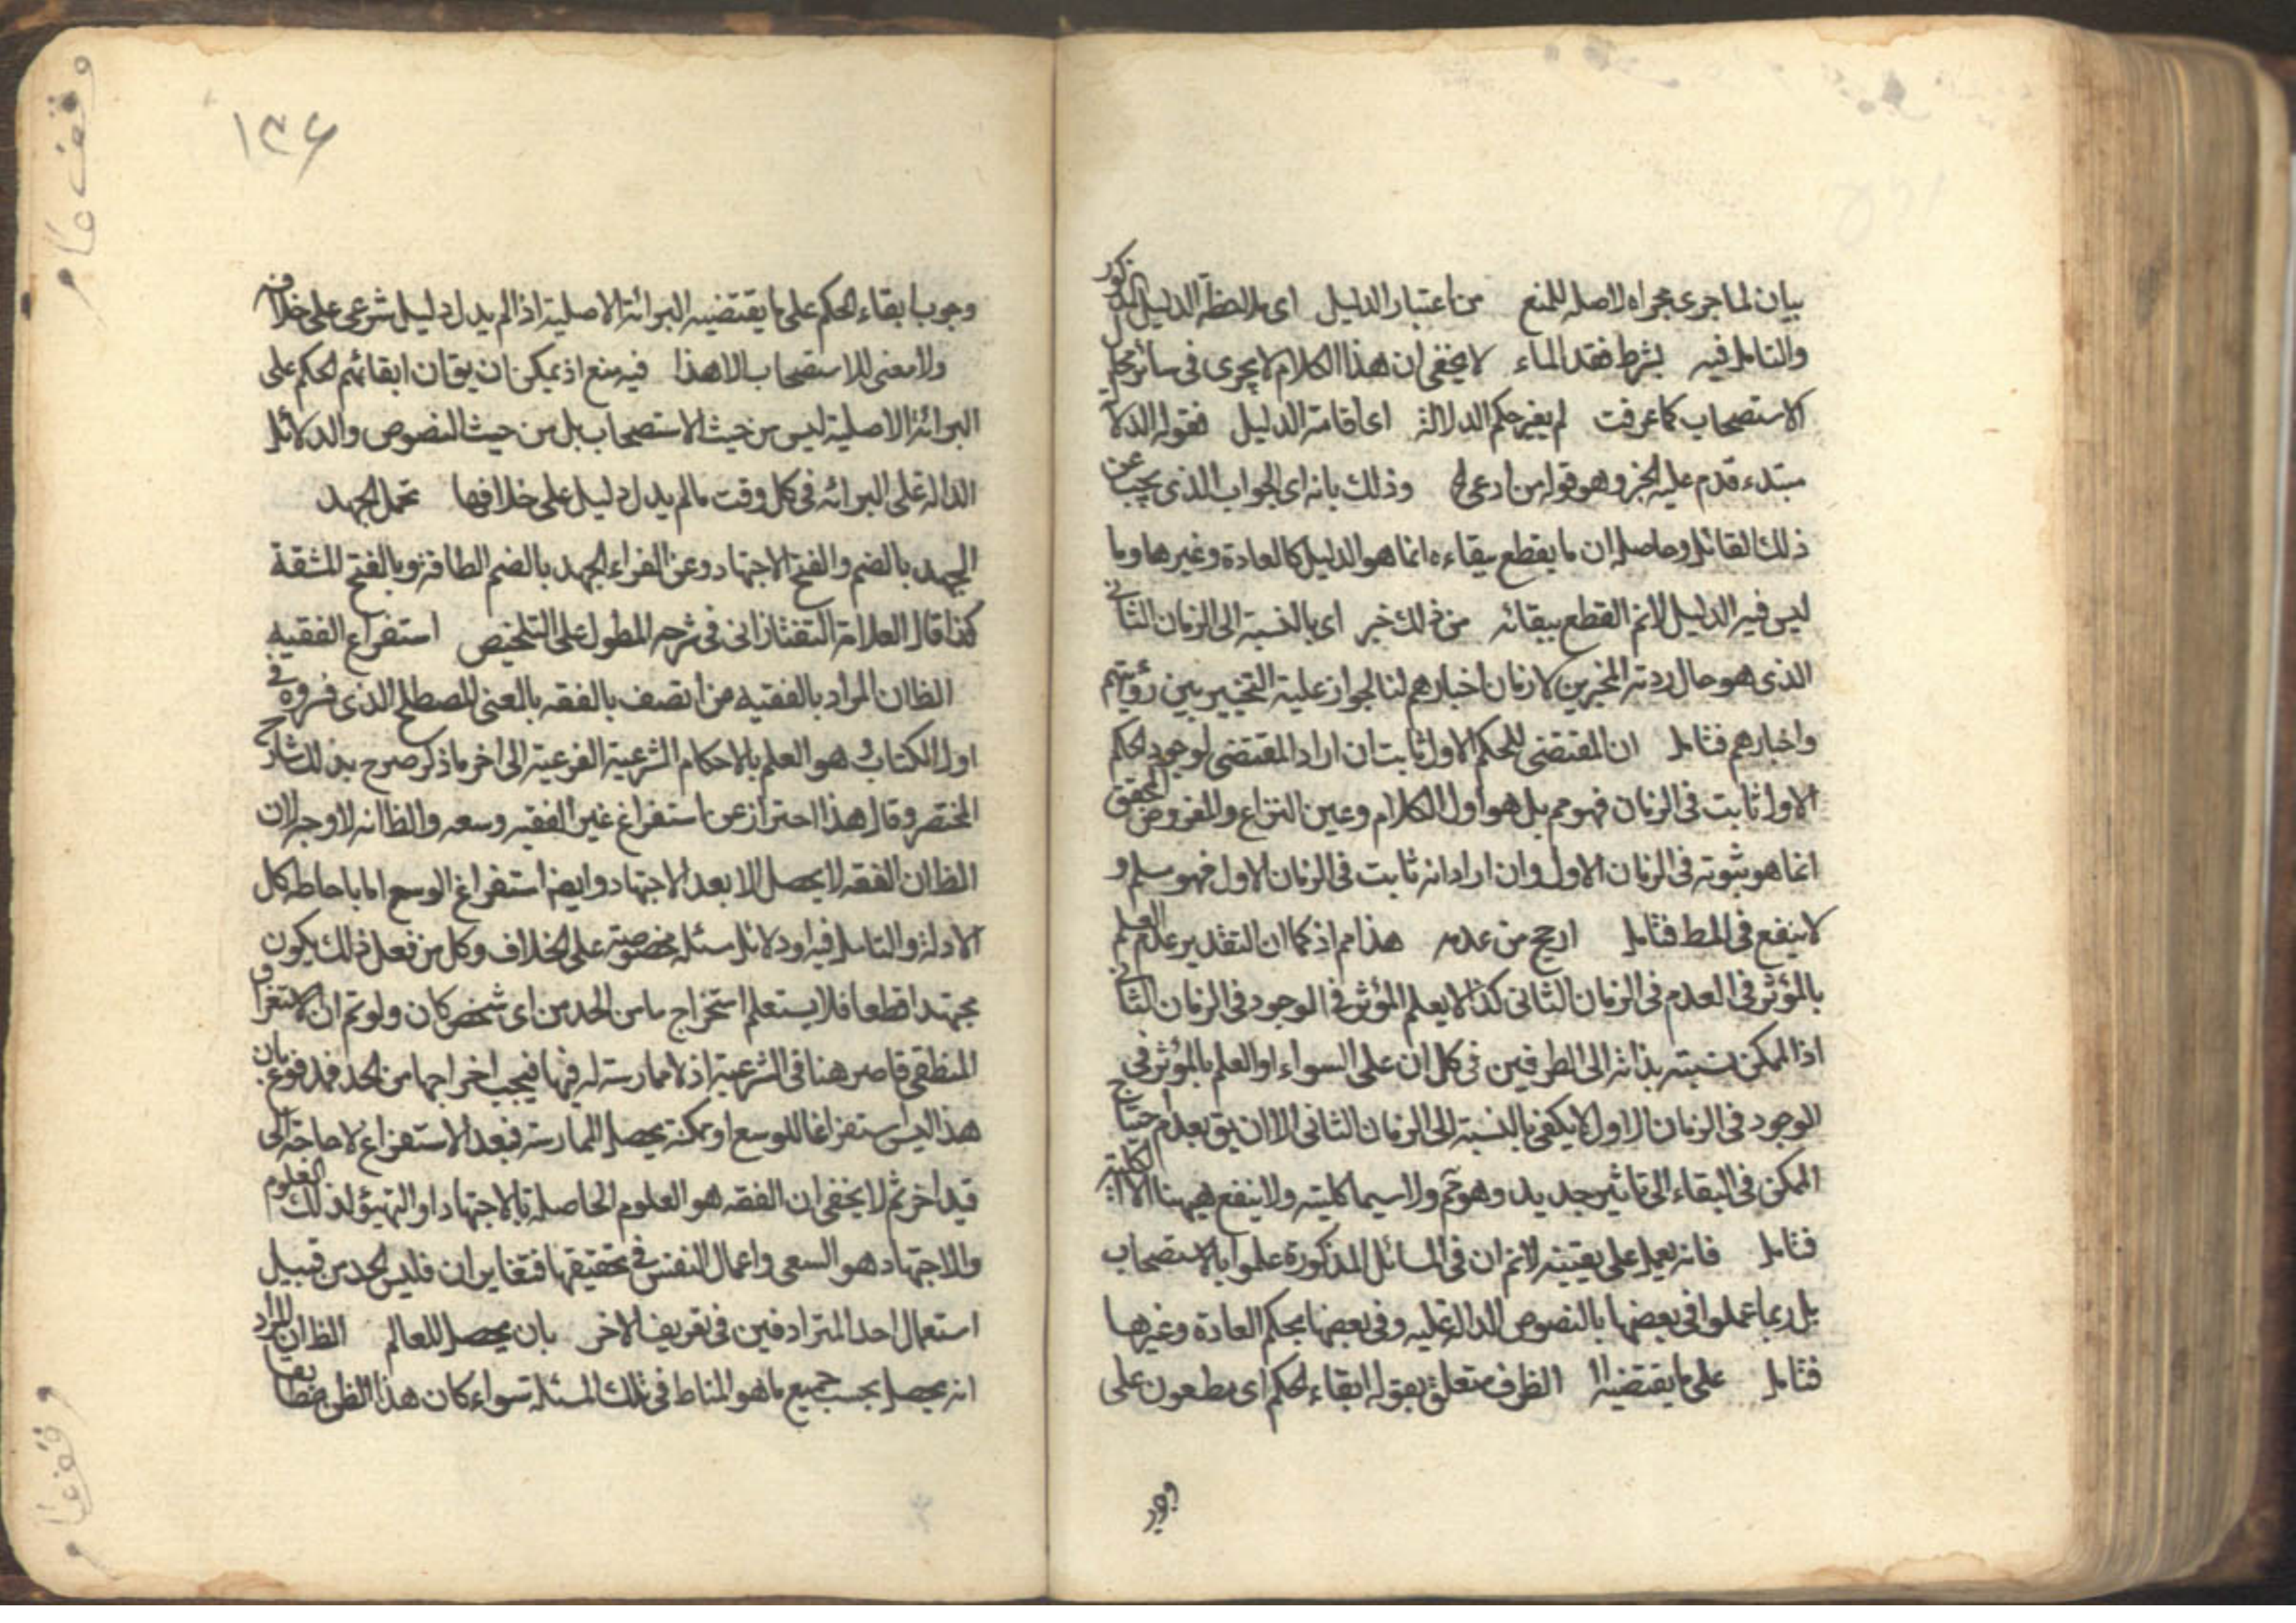 بيان لما جرى مجراه لاصله للمنع من اعتبار الدليل اى ملاحظة الدليل المذكور
والتامل فيه بشرط فقد الماء لا يخفى ان هذا الكلام لا يجرى فى سائر محل
الاستصحاب كما عرفت لم يغير حكم الدلالة اى اقامة الدليل فقوله الدلا
مبتدء قدم عليه الخبر وهو قوله من ادعى الخ وذلك بانه اى الجواب الذى يجب عن
ذلك القائل وحاصله ان ما يقطع ببقاءه انما هو الدليل كالعادة وغيرها وما
ليس فيه الدليل لانم القطع ببقائه من ذلك خبر اى بالنسبة الى الزمان الثانى
الذى هو حال ردته المخبرين لا زمان اخبارهم لنا لجواز علية التخيير بين رؤيتهم
واخبارهم فتامل ان المقتضى للحكم الاول ثابت ان اراد المقتضى لوجود الحكم
الاول ثابت فى الزمان فهو مم بل هو اول الكلام وعين النزاع والمفروض المحقق
انما هو ثبوته فى الزمان الاول وان اراد انه ثابت فى الزمان الاول فهو مسلم و
لا ينفع فى المط فتامل ارجح من عدمه هذا مم اذ كما ان التقدير عدم العلم
بالمؤثر فى العدم فى الزمان الثانى كذا لا يعلم المؤثر فى الوجود فى الزمان الثانى
اذ الممكن نسبته بذاته الى الطرفين فى كل ان على السواء او العلم بالمؤثر فى
الوجود فى الزمان الاول لا يكفى بالنسبة الى الزمان الثانى الا ان يق بعدم احتياج
الممكن فى البقاء الى تاثير جديد وهو مم ولا سيما كليته ولا ينفع ههنا الا الكلية
فتامل فانه يعمل على يقينه لانم ان فى المسائل المذكورة عملوا بالاستصحاب
بل ربما عملوا فى بعضها بالنصوص الدالة عليه وفى بعضها بحكم العادة وغيرها
فتامل على ما يقتضيه الا الظرف متعلق بقوله ابقاء الحكم اى مطعون على
وجوب
١٣۶
وجوب ابقاء الحكم على ما يقتضيه البرائة الاصلية اذا لم يدل دليل شرعى على خلافه
ولا معنى للاستصحاب الا هذا فيه منع اذ يمكن ان يق ان ابقائهم الحكم على
البرائة الاصلية ليس من حيث الاستصحاب بل من حيث النصوص والدلائل
الدالة على البرائه فى كل وقت ما لم يدل دليل على خلافها تحمل الجهد
الجهد بالضم والفتح الاجتهاد وعن الفراء الجهد بالضم الطاقة وبالفتح المشقة
كذا قال العلامة التفتازانى فى شرحه المطول على التلخيص استفراغ الفقيه
الظ ان المراد بالفقيه من اتصف بالفقه بالمعنى المصطلح الذى فسروه فى
اول الكتاب و هو العلم بالاحكام الشرعية الفرعية الى اخر ما ذكر صرح بذلك شارح
المختصر وقال هذا احتراز عن استفراغ غير الفقيه وسعه والظ انه لا وجه لان
الظ ان الفقه لا يحصل الا بعد الاجتهاد وايضا استفراغ الوسع اما باحاطة كل
الادلة والتامل فيه او دلائل مسئلة مخصوصة على الخلاف وكل من فعل ذلك يكون
مجتهدا قطعا فلا يستعلم استخراج ما من الحد من اى شخص كان ولو تم ان الاستغراق
المنطقى قاصر هنا فى الشرعية اذ لا ممارسة له فيها فيجب اخراجها من الحد فمدفوع بان
هذا ليس استفراغا للوسع او يمكنه يحصل الممارسة فبعد الاستفراغ لا حاجة الى
قيد اخر ثم لا يخفى ان الفقه هو العلوم الحاصلة بالاجتهاد او التهيؤ لذلك العلوم
والاجتهاد هو السعى واعمال النفس فى تحقيقها فتغايران فليس الحد من قبيل
استعمال احد المترادفين فى تعريف الاخر بان يحصل للعالم الظ ان المراد
انه يحصل بحسب جميع ما هو المناط فى تلك المسئلة سواء كان هذا الظن مطابقا
وقف عام
وقف عام